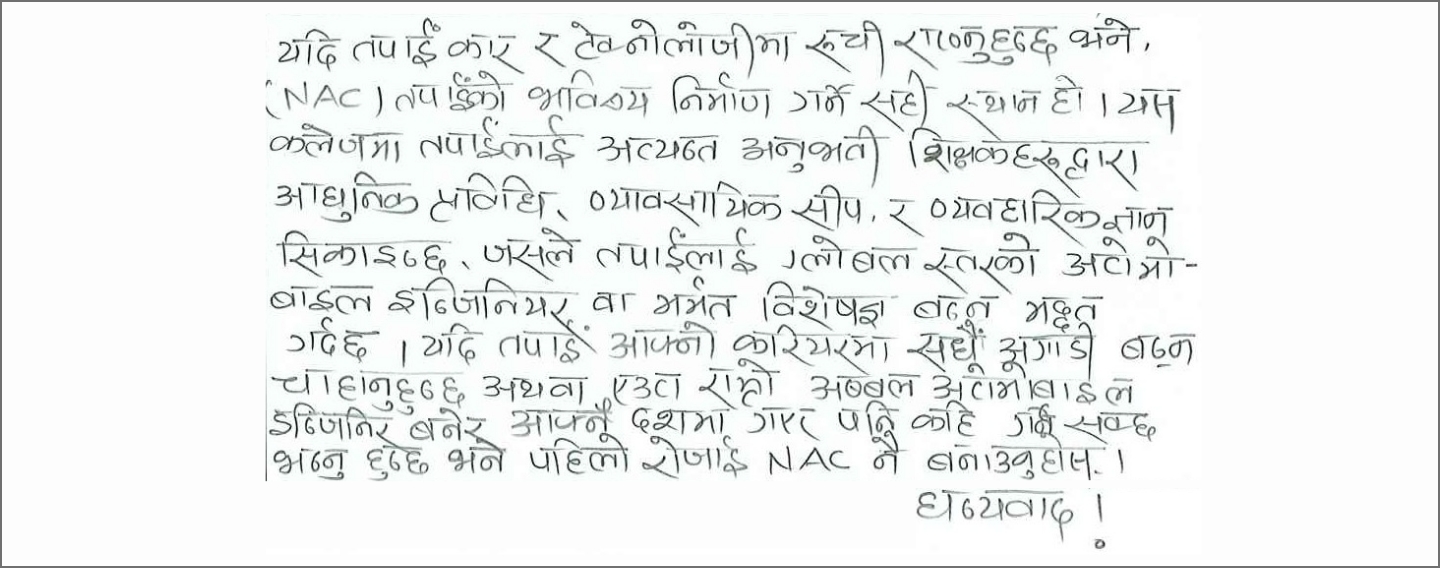 यदि तपाईं कार र टेक्नोलोजीमा रूची राख्नुहुन्छ भने,
(NAC) तपाईंको भविष्य निर्माण गर्ने सही स्थान हो । यस
कलेजमा तपाईंलाई अत्यन्त अनुभवी शिक्षकहरूद्वारा
आधुनिक प्रविधि, व्यावसायिक सीप, र व्यवहारिक ज्ञान
सिकाइन्छ, जसले तपाईंलाई ग्लोबल स्तरको अटोमो-
बाइल इन्जिनियर वा मर्मत विशेषज्ञ बन्न मद्दत
गर्दछ । यदि तपाईं आफ्नो करियरमा सधैं अगाडी बढ्न
चाहानुहुन्छ अथवा एउटा राम्रो अब्बल अटोमोबाइल
इन्जिनिर बनेर आफ्नै देशमा गएर पनि केहि गर्न सक्छु
भन्नु हुन्छ भने पहिलो रोजाई NAC नै बनाउनुहोस् ।
धन्यवाद !